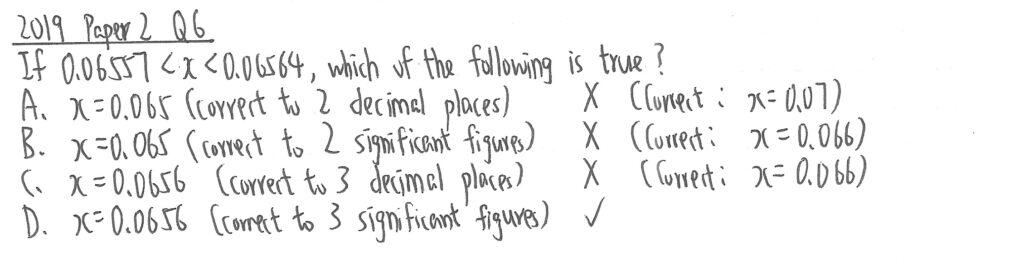 2019 Paper 2 Q6
If 0.06557 < x < 0.06564, which of the following is true?
A. x = 0.065 (correct to 2 decimal places) X (Correct : x = 0.07)
B. x = 0.065 (correct to 2 significant figures) X (Correct : x = 0.066)
C. x = 0.0656 (correct to 3 decimal places) X (Correct : x = 0.066)
D. x = 0.0656 (correct to 3 significant figures) ✓